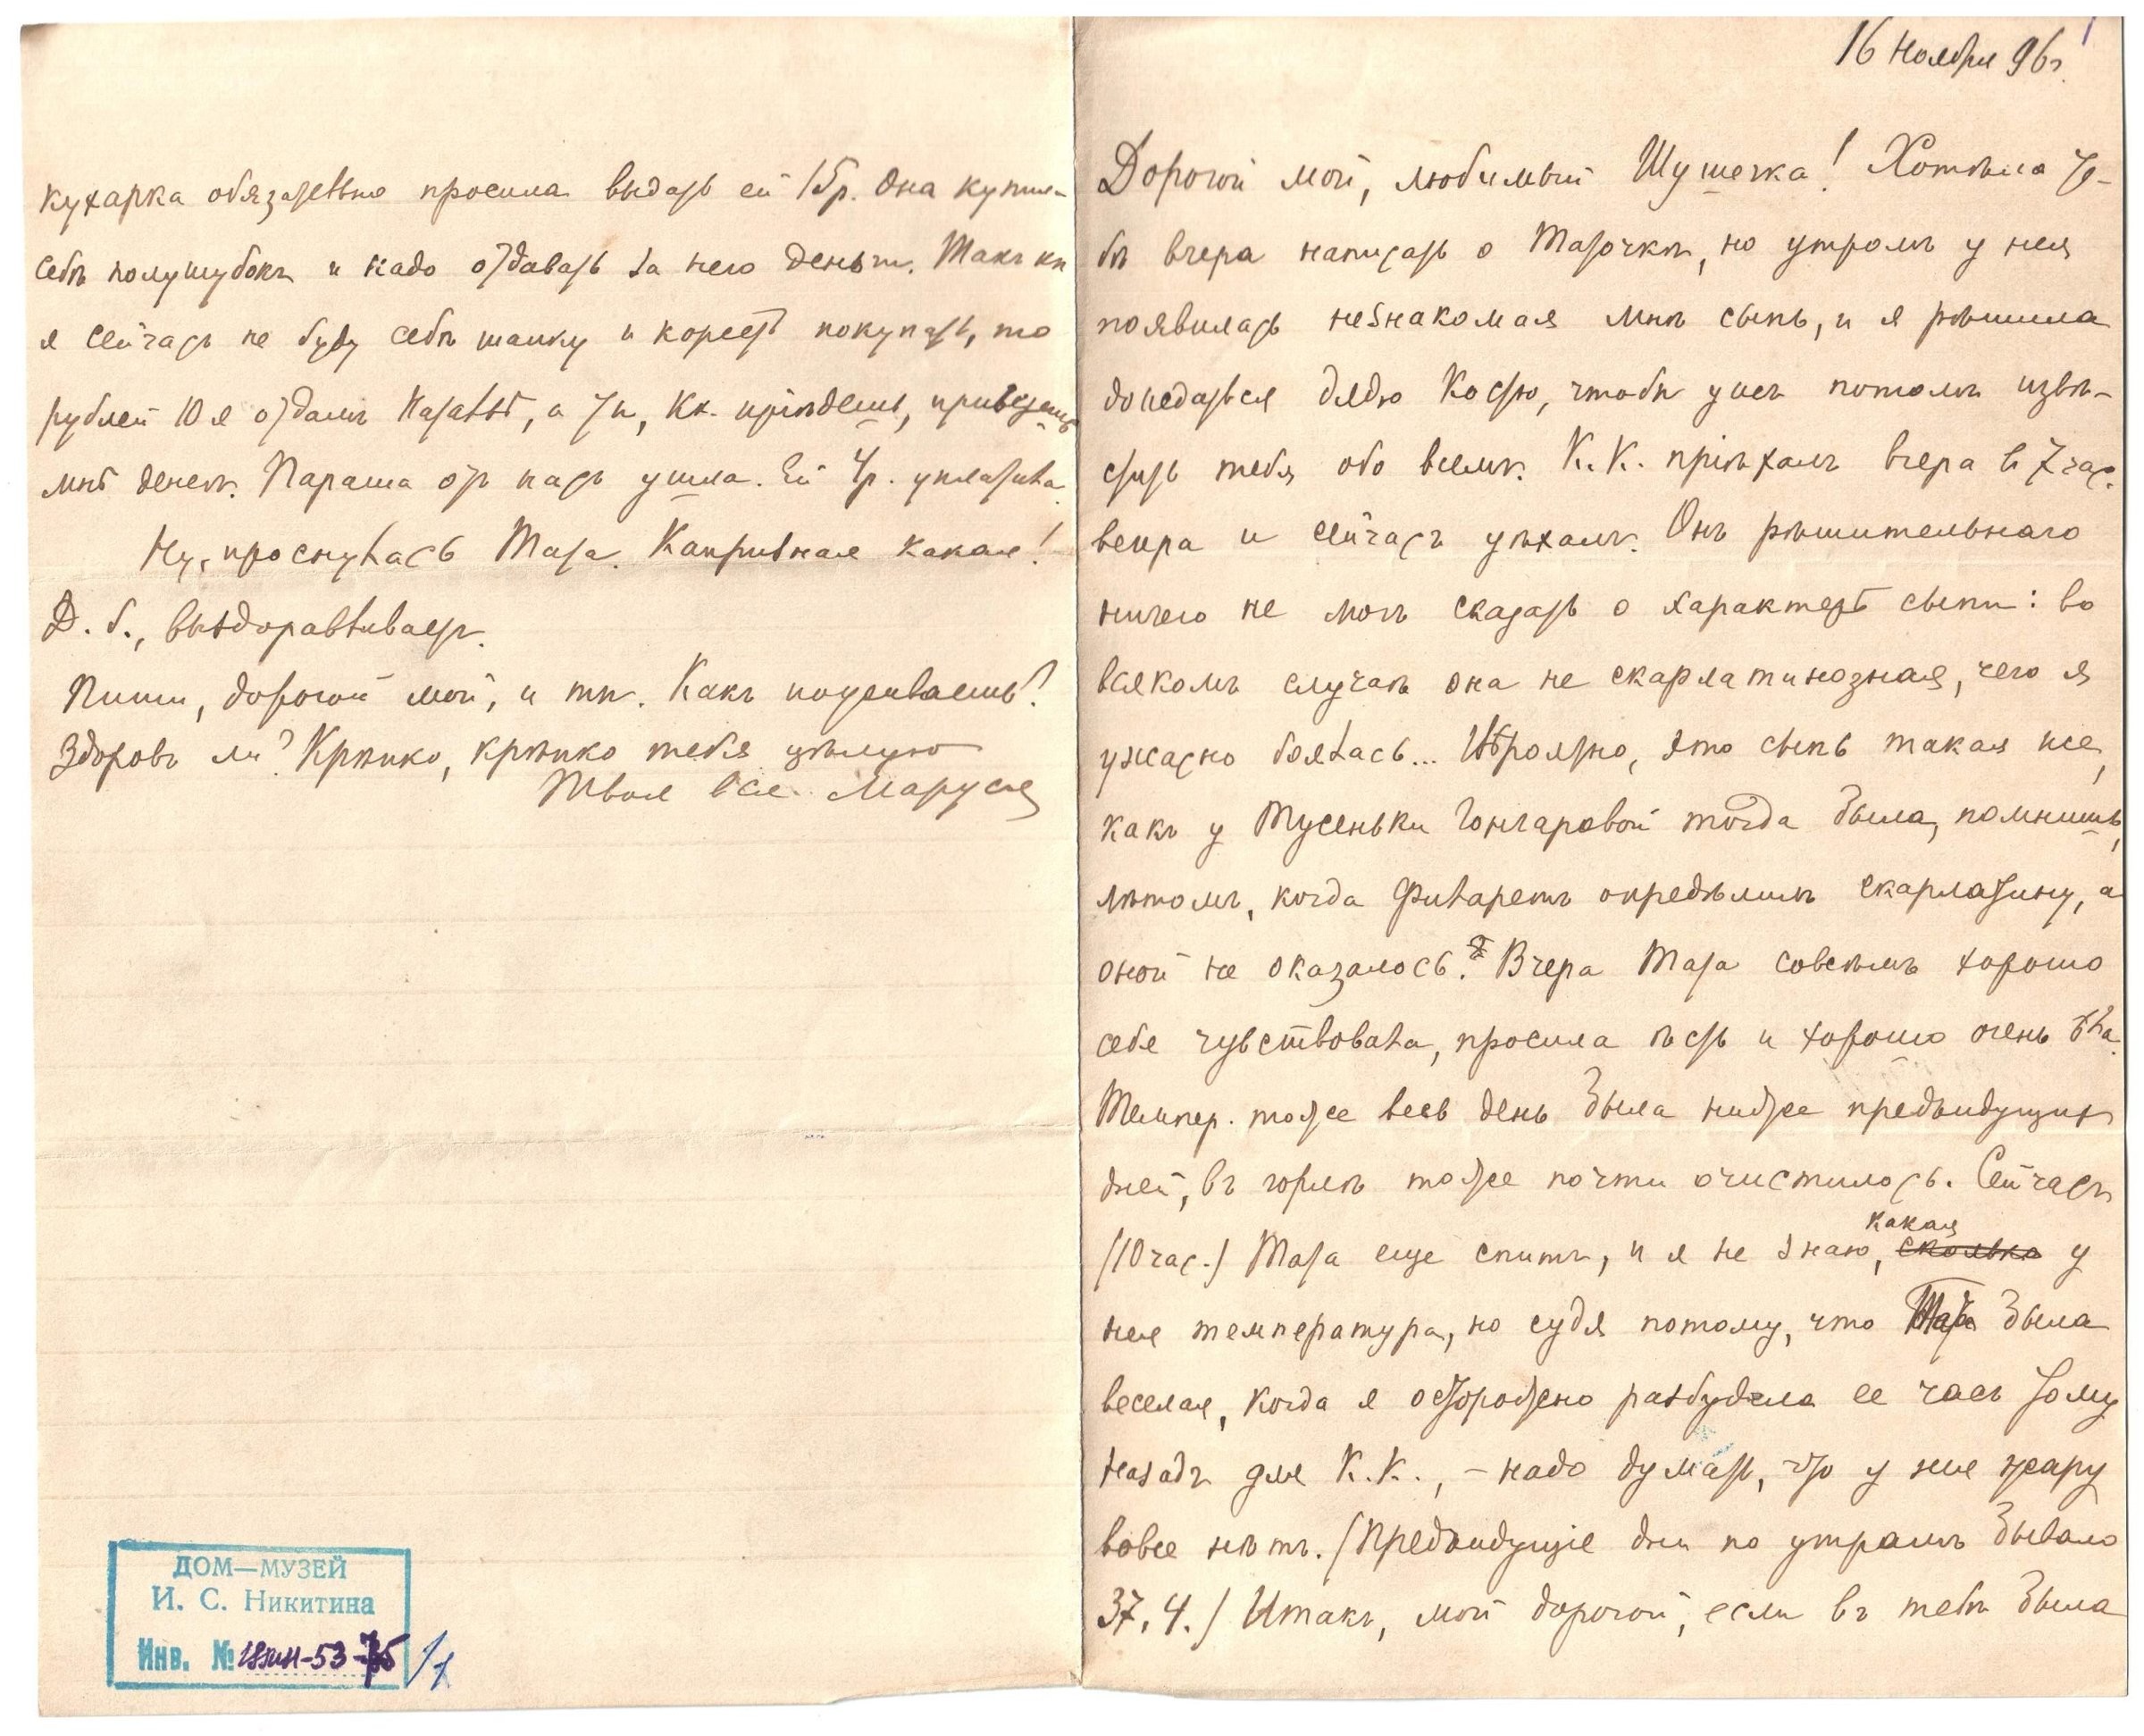 16 Ноября 96 г.
Дорогой мой, любимый Шушечка! Хотѣла те-
бѣ вчера написать о Таточкѣ, но утромъ у нея
появилась незнакомая мнѣ сыпь, и я рѣшила
дождаться дядю Костю, чтобы ужъ потомъ извѣ-
стить тебя обо всемъ. К.К. пріѣхалъ вчера в 7 час.
вечера и сейчасъ уѣхалъ. Онъ рѣшительнаго
ничего не могъ сказать о характерѣ сыпи: во
всякомъ случаѣ она не скарлатинозная, чего я
ужасно боялась... Вѣроятно, это сыпь такая же,
какъ у Тусеньки Гончаровой тогда была, помнишь,
лѣтомъ, когда Филаретъ опредѣлилъ скарлатину, а
оной не оказалось? Вчера Тата совсѣмъ хорошо
себя чувствовала, просила ѣсть и хорошо очень ѣла.
Темпер. тоже весь день была ниже предыдущихъ
дней, въ горлѣ тоже почти очистилось. Сейчасъ
(10 час.) Тата еще спитъ, и я не знаю, сколько какая у
нея температура, но судя потому, что Тата была
веселая, когда я осторожно разбудила ее часъ тому
назадъ для К.К., – надо думать, что у нея жару
вовсе нѣтъ. (Предыдущіе дни по утрамъ бывало
37,4.) Итакъ, мой дорогой, если въ тебѣ была
кухарка обязательно просила выдать ей 15р. Она купила
себѣ полушубокъ и надо отдавать за него деньги. Такъ кк
я сейчасъ не буду себѣ шапку и корсетъ покупать, то
рублей 10 я отдамъ Натальѣ, а ты, кк. пріѣдешь, привезешь
мнѣ денегъ. Параша отъ насъ ушла. Ей 4р. уплатила.
Ну, проснулась Тата. Капризная какая!
Д. б., выздоравливаетъ.
Пиши, дорогой мой, и ты. Какъ поживаешь?
Здоровъ ли? Крѣпко, крѣпко тебя цѣлую
Твоя вся Маруся
ДОМ—МУЗЕЙ
И. С. Никитина
Инв. №